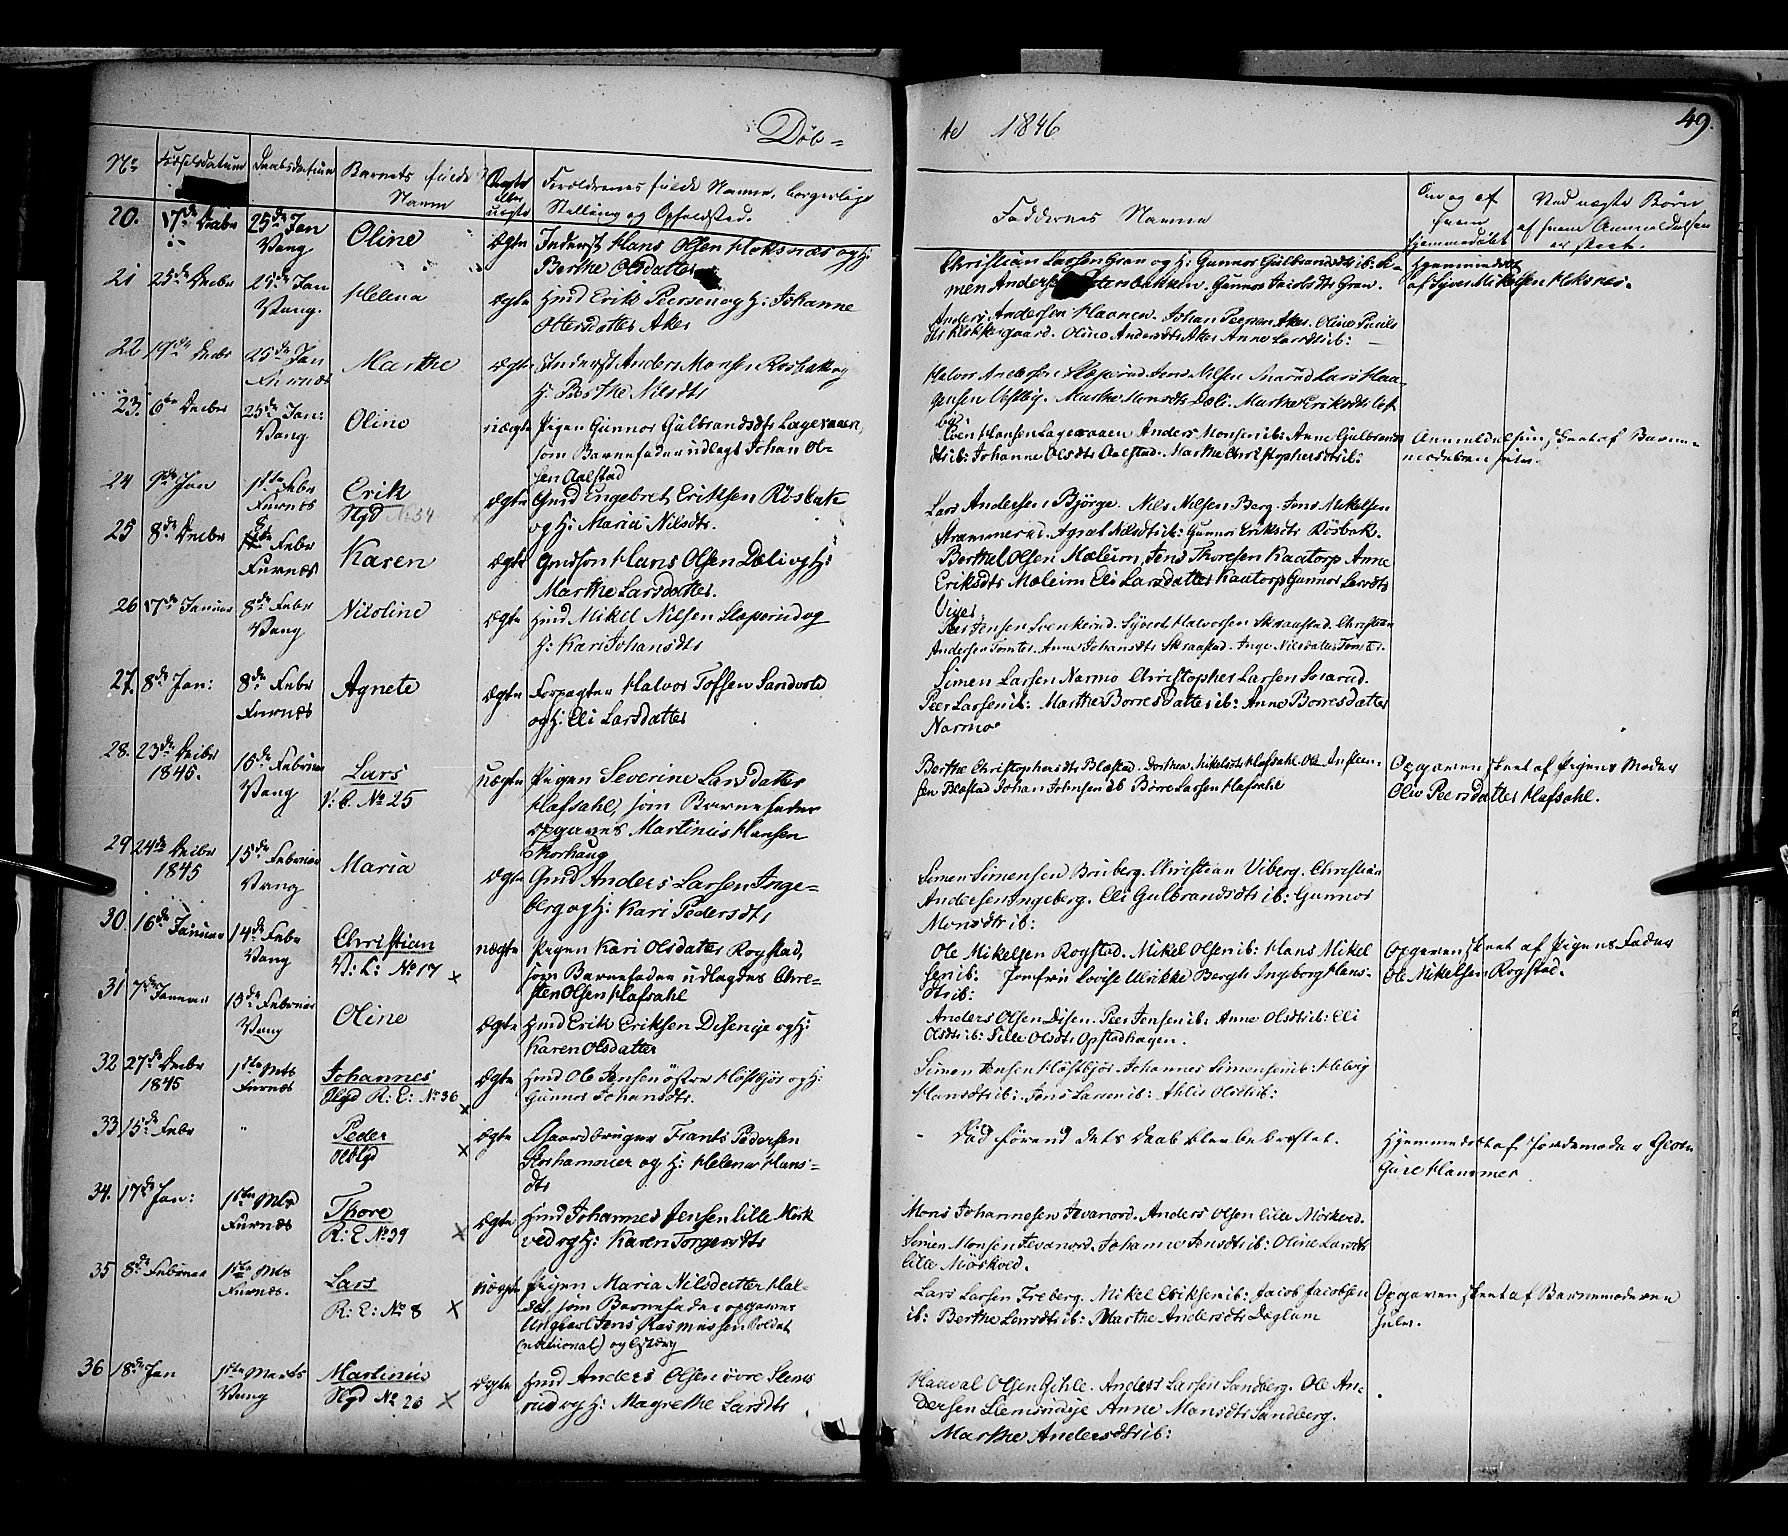 Døb-
Ao 1846
49.
No Fødselsdatum Daabsdatum Barnets fulde Navn Ægte eller uægte Forældrenes fulde Navne, borgerlige Stilling og Opholdsted.
Faddernes Navne
Om og af hvem hjemmedøbt
Ved uægte Børn af hvem Anmeldelsen er skeet.
20. 17de Decbr 25de Jan Vang Oline ægte Inderst Hans Olsen Heksnæs og H:
Berthe Olsdatter
Christian Larsen Gran og H: Gunnor Gulbrandsdtr ib:
men Anders Gunnor Jacobsdtr Gran.
Hjemmedøbt
af Syver Mikelsen Heksnæs.
21 25de Decbr 25de Jan Vang. Helena ægte Hmd Erik Peersen og H: Johanne
Olersdatter Aker
Anders Andersen Johan Peersen Aker. Oline
Klokkergaard. Oline Andersdtr Aker Anne Larsdtr ib:
22 19de Decbr 25de Jan Furnæs Marthe ægte Inderst Anders Monsen Rosbak og
H: Berthe Nilsdtr
Halvor Andersen Sloperud Jens Nilsen Lars Haa-
gensen Vestby. Marthe Monsdtr Dæli. Marthe Eriksdtr Vest
by
23. 6te Decbr 25de Jan: Vang Oline uægte Pigen Gunnor Gulbrandsdtr Lageraaen,
som Barnefader udlagt Johan Ol-
sen Aalstad
Even Hansen Lageraaen Anders Monsen ib: Anne Gulbrands
dtr ib: Johanne Olsdtr Aalstad. Marthe Christophersdtr ib:
Anmeldelsen skeet af Barne-
moderen selv.
24 9de Jan 1ste Febr Furnæs Erik ægte Gmd Engebret Eriksen Røsbak
Hgd No 54 og H: Maria Nilsdtr.
Lars Andersen Bjørge. Nils Nilsen Berg. Jens Mikelsen
Strammerud. Agnet Nilsdtr ib: Gunnor Eriksdtr Røsbak.
25 8de Decbr 8de Febr Furnæs Karen ægte Gmdson Hans Olsen Dæli og H:
Marthe Larsdatter.
Berthel Olsen Mæleim, Jens Thoresen Kaatorp Anne
Eriksdtr Mæleim Eli Larsdatter Kaatorp Gunnor Larsdtr
26 17de Januar 8de Febr Vang Nicoline ægte Hmd Mikel Nilsen Sloperud og
H: Kari Johansdtr
Peer Jensen Svenkerud. Syvert Halvorsen Skraastad. Christian
Andersen Tomter. Anne Johansdtr Skraastad. Inge Nilsdatter Tomter.
27. 8de Jan: 8de Febr Furnæs Agnete ægte Forpagter Halvor Toffsen Sandvold
og H: Eli Larsdatter
Simen Larsen Narmo Christopher Larsen Snarud.
Peer Larsen ib: Marthe Borresdatter ib: Anne Borresdatter
Narmo
28. 23de Decbr 1845. 15de Februar Vang Lars uægte Pigen Severine Larsdatter
V: C. No 25 Hafsahl, som Barnefader
opgaves Martinus Hansen
Thorhaug
Berthe Christophersdtr Blæstad. Dorthea Mikelsdtr Hafsahl. Ole Ansteen-
sen Blæstad Johan Johnsen ib Børre Larsen Hafsahl
Opgaven skeet af Pigens Moder
Oliv Peersdatter Hafsahl.
29 24de Decbr 1845 15de Februar Vang Maria ægte Gmd Anders Larsen Inge-
berg og H: Kari Pedersdtr
Simen Simensen Bruberg. Christian Viberg. Christian
Andersen Ingeberg. Eli Gulbrandsdtr ib: Gunnor
Monsdtr ib:
30. 16de Januar 14de Febr Vang Christian uægte Pigen Kari Olsdatter Rogstad,
V: C: No 17 x som Barnefader udlagdes Chre-
sten Olsen Hafsahl
Ole Mikelsen Rogstad. Mikel Olsen ib: Hans Mikel
sen ib: Jomfru Lovise Ulrikke Bergh Ingeborg Hans-
dtr ib:
Opgaven skeet af Pigens Fader
Ole Mikelsen Rogstad.
31 7de Januar 15de Februar Vang Oline ægte Hmd Erik Eriksen Diseneje og H:
Karen Olsdatter
Anders Olsen Disen. Peer Jensen ib: Anne Olsdtr ib: Eli
Olsdtr ib: Sille Olsdtr Opstadhagen.
32 27de Decbr 1845 1ste Mts Furnæs Johannes ægte Hmd Ole Jensen østre Høstbjør og H:
Hgd R: C: No 36 x Gunnor Johansdtr.
Simen Jensen Høstbjør. Johannes Simensen ib: Helvig
Hansdtr ib: Jens Larsen ib: Athis Olsdtr ib:
33 15de Febr " Peder ægte Gaardbruger Frants Pedersen
x Storhammer og H: Helena Hans-
dtr
" Død førend dets Daab blev bekræftet.
Hjemmedøbt af Jordemoder
Gure Hammer
34. 17de Jan: 1ste Mts Furnæs Thore ægte Hmd Johannes Jensen lille Mørk
R: C No 39 x ved og H: Karen Torgersdtr
Mons Johannesen Jevanord. Anders Olsen lille Mørkved.
Simen Monsen Jevanord. Johanne Jensdtr ib: Oline Larsdtr
lille Mørkved.
35 8de Februar 1ste Mts Furnæs. Lars uægte Pigen Maria Nilsdatter
R: C: No 8 x som Barnefader opgaves
Ungkarl Jens Rasmussen Soldat
(national)
Lars Larsen Freberg. Mikel Eriksen ib: Jacob Jacobsen
ib: Berthe Larsdtr ib: Marthe Andersdtr Deglum
Opgaven skeet af Barnemoderen
selv.
36 18de Jan 1ste Marts Vang Martinus ægte Hmd Anders Olsen øvre Slems
Hgd No 26 x rud og H: Magrethe Larsdtr
Haaval Olsen Gihle. Anders Larsen Sandberg. Ole An-
dersen Slemsrudeje Anne Monsdtr Sandberg.
Marthe Andersdtr ib: